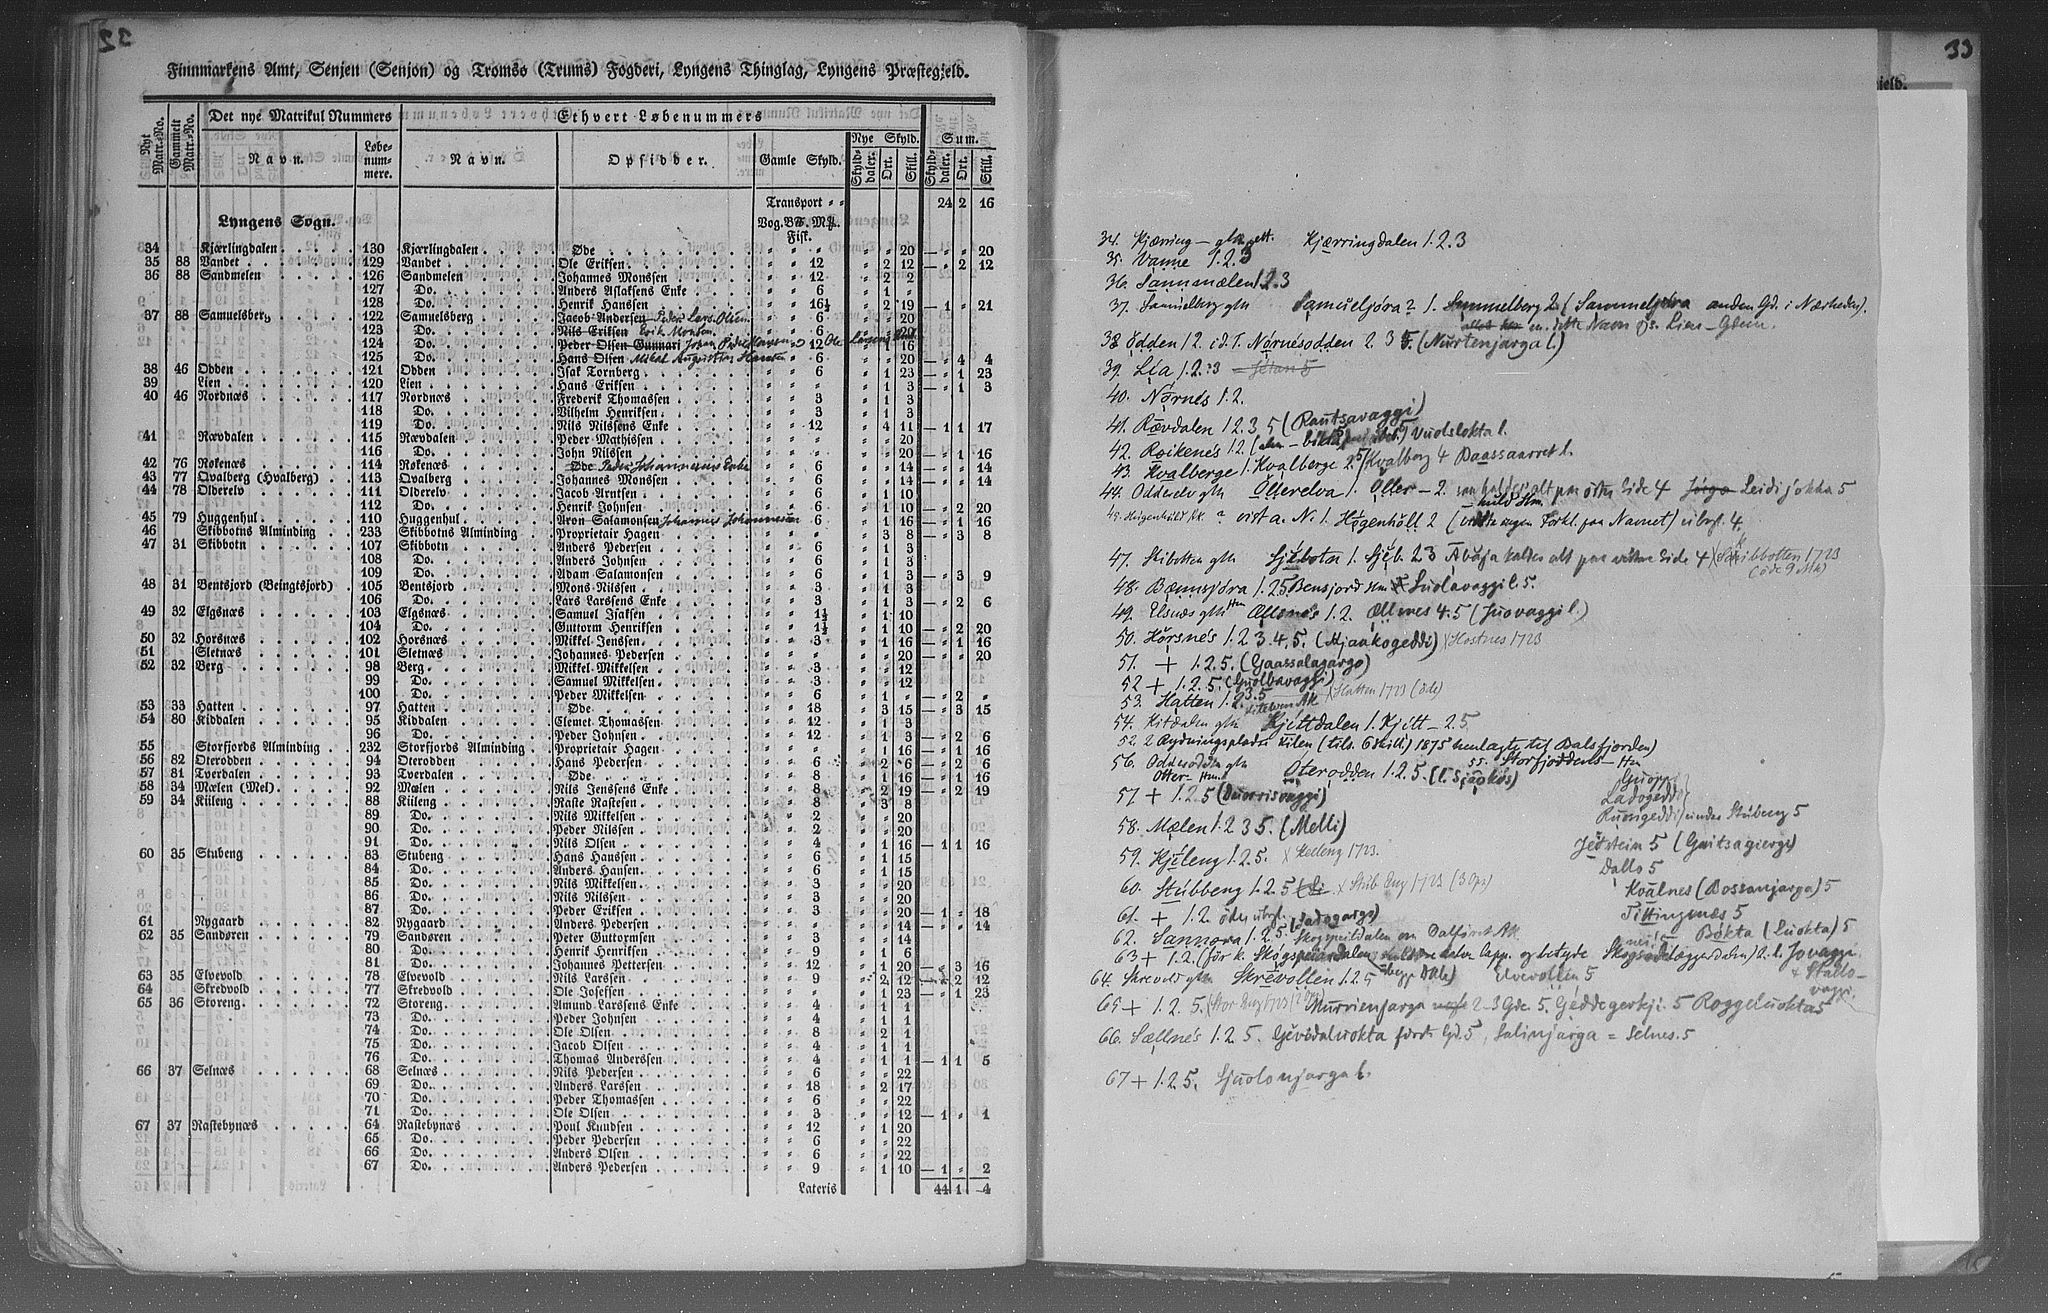 32
Finnmarkens Amt, Senjen (Senjon) og Tromsø (Trums) Fogderi, Lyngens Thinglag, Lyngens Præstegjeld.
Det nye Matrikul Nummers Ethvert Løbenummers
Nyt Matr.-No. Gammelt Matr.-No. Navn. Løbe-num-mere. Navn. Opsidder. Gamle Skyld. Nye Skyld. Sum.
Skyld-daler. Ort. Skill. Skyld-daler. Ort. Skill.
Transport " " 24 2 16
Lyngens Sogn. Vog. Fisk.
34 Kjærlingdalen 130 Kjærlingdalen Øde " " " " " 20 — " " 20
35 88 Vandet 129 Vandet Ole Eriksen " " 12 " 2 12 — " 2 12
36 88 Sandmelen 126 Sandmelen Johannes Monssen " " 12 " 2 2
127 Do. Anders Aslaksens Enke " " 6 " 1 "
128 Do. Henrik Hanssen " " 16½ " 2 19 — 1 " 21
37 88 Samuelsberg 122 Samuelsberg Jacob Andersen Peder Lars Olsen " " 6 " " 20
123 Do. Nils Eriksen Erik Monsen " " 6 " " 20
124 Do. Peder Olsen Gunnari Johan Peder " 12 Ole 16
125 Do. Hans Olsen Mikal Augustin Hansen " " 6 " " 20 — " 4 4
38 46 Odden 121 Odden Isak Tornberg " " 6 " 1 23 — " 1 23
39 Lien 120 Lien Hans Eriksen " " " " 1 3 — " 1 3
40 46 Nordnæs 117 Nordnæs Frederik Thomassen " " 3 " 1 3
118 Do. Vilhelm Henriksen " " 3 " 1 3
119 Do. Nils Nilssens Enke " " 12 " 4 11 — 1 1 17
41 Rævdalen 115 Rævdalen Peder Mathissen " " " " " 20
116 Do. John Nilssen " " " " " 20 — " 1 16
42 76 Røkenæs 114 Røkenæs Øde Peder Johannesens Enke " " 6 " " 14 — " " 14
43 77 Qvalberg (Hvalberg) 113 Qvalberg Johannes Monssen " " 6 " " 14 — " " 14
44 78 Olderelv 111 Olderelv Jacob Arntsen " " 6 " 1 10
112 Do. Henrik Johnsen " " 6 " 1 10 — " 2 20
45 79 Huggenhul 110 Huggenhul Aron Salamonsen Johannes Johannesen " " 6 " 1 16 — " 1 16
46 Skibbotns Alminding 233 Skibbotns Alminding Proprietair Hagen " " " " 3 8 — " 3 8
47 31 Skibbotn 107 Skibbotn Anders Pedersen " " 6 " 1 3
108 Do. Anders Johnsen " " 6 " 1 3
109 Do. Adam Salamonsen " " 6 " 1 3 — " 3 9
48 31 Bentsjord (Beingtsjord) 105 Bentsjord Mons Nilssen " " 3 " 1 3
106 Do. Lars Larssens Enke " " 3 " 1 3 — " 2 6
49 32 Elgsnæs 103 Elgsnæs Samuel Isaksen " " 1½ " 1 10
104 Do. Guttorm Henriksen " " 1½ " 1 10 — " 2 20
50 32 Horsnæs 102 Horsnæs Mikkel Jenssen " " 3 " 1 16 — " 1 16
51 Sletnæs 101 Sletnæs Johannes Pedersen " " " " " 20 — " " 20
52 32 Berg 98 Berg Mikkel Mikkelsen " " 3 " " 12
99 Do. Samuel Mikkelsen " " 3 " " 12
100 Do. Peder Mikkelsen " " 6 " 1 " — " 2 "
53 33 Hatten 97 Hatten Øde " " 18 " 3 15 — " 3 15
54 80 Kiddalen 95 Kiddalen Clemet Thomassen " " 12 " 1 3
96 Do. Peder Johnsen " " 12 " 1 3 — " 2 6
55 Storfjords Alminding 232 Storfjords Alminding Proprietair Hagen " " " " 1 16 — " 1 16
56 82 Oterodden 94 Oterodden Hans Pedersen " " 6 " 2 6 — " 2 6
57 81 Tverdalen 93 Tverdalen Øde " " 8 " 1 16 — " 1 16
58 34 Mælen (Mel) 92 Mælen Nils Jenssens Enke " " 8 " 2 19 — " 2 19
59 34 Kiileng 88 Kiileng Raste Rastesen " " 8 " 3 8
89 Do. Nils Mikkelsen " " 2 " " 20
90 Do. Peder Nilssen " " 2 " " 20
91 Do. Nils Olsen " " 4 " 1 16 — 1 1 16
60 35 Stubeng 83 Stubeng Hans Hanssen " " 6 " 1 15
84 Do. Anders Hansen " " 6 " 1 15
85 Do. Nils Mikkelsen " " 3 " " 20
86 Do. Nils Nilssen " " 3 " " 20
87 Do. Peder Eriksen " " 3 " " 20 — 1 " 18
61 Nygaard 82 Nygaard Anders Pedersen " " " " " 14 — " " 14
62 35 Sandøren 79 Sandøren Peter Guttormsen " " 3 " " 14
80 Do. Henrik Henriksen " " 9 " 1 6
81 Do. Johannes Pettersen " " 12 " 1 20 — " 3 16
63 35 Elvevold 78 Elvevold Nils Larssen " " 9 " 2 12 — " 2 12
64 Skredvold 77 Skredvold Ole Josefsen " " " " 1 23 — " 1 23
65 36 Storeng 72 Storeng Amund Larssens Enke " " 4 " 1 1
73 Do. Peder Johnsen " " 4 " 1 1
74 Do. Ole Olsen " " 8 " 2 1
75 Do. Jacob Olsen " " 4 " 1 1
76 Do. Thomas Anderssen " " 4 " 1 1 — 1 1 5
66 37 Selnæs 68 Selnæs Nils Pedersen " " 6 " " 22
69 Do. Anders Larssen " " 18 " 2 17
70 Do. Peder Thomassen " " 6 " " 22
71 Do. Ole Olsen " " 3 " " 12 — 1 " 1
67 37 Rastebynæs 64 Rastebynæs Poul Knudsen " " 12 " 1 20
65 Do. Peder Pedersen " " 6 " " 22
66 Do. Anders Olsen " " 6 " " 22
67 Do. Anders Pedersen " " 9 " 1 10 — 1 " 2
Lateris 44 1 4
33
jeld.
34. Kjærring — Kjærringdalen 1.2.3
35. Vanne 1.2.3
36. Sannmælen 1 2.3
37. Samuelberg gtn Samueljöra ? 1. Sammelberg 2 (Sammeljöra anden Gd. i Nærheden).
en. dette Navn Lien - Glem.
38 Odden 12. Nørnesodden 2. 3 5. (Nurtenjarga l.)
39. Lia 1.2.3
40. Nørnes 1.2.
41. Rævdalen 1 2.3 5 (Rautsavaggi)
42. Roikenes 1 2. Vuolslokta l.
43. Kvalberge 1. Kvalberge 2. 5/ Kvalberg 4 Baassaarret l.
44. Odderelv gtn Ölterelva 1. Oller — 2. kaldes alt paa østre Side 4 Leidijokka 5
vist a. N. 1. Høgenhöll 2 ( ingen Forkl. paa Navnet) 4.
47. Skibotten gtn 1. 2 3 kaldes alt paa vestre Side 4 Skibbotten 1723
(öde 9 Mk)
48. Bænnsjöra 1. 2 5 Bensjord Suolavaggi l. 5.
49. Elsnæs gtn Ællsnes 1.2. Ællnes 4.5 (Juovaggi l.)
50. Hørsnes 1.2 3.4.5. (Njaakogeddi) Hostnes 1723
51. + 1.2 5. (Gaassalagargo)
52 + 1.2.5. (Guolbavaggi)
53. Hatten 1.2.3.5 Hatten 1723 (öde)
54. Kitdalen gtn Kjittdalen 1. Kjitt — 2.5
52. 2 Rydningspladse Kilen (tils. 6 skill.) 1875 henlagte til Balsfjorden)
55. Storfjoddens —
56. Odderodden gtn Oterodden 1.2 5. (l. Sjaokos)
57 + 1.2 5 (Duorrisvaggi) Guoppe
Ladogeddi
58. Mælen 1. 2 3 5. (Melli) Ruongeddi under Stubeng 5
59. Kjileng 1.2 5. Keeleng 1723. Jedstein 5 (Gaitsagierge)
Dallo 5
60. Stubbeng 1.2 5 Stub Eng 1723 (3 Opr) Kvalnes (Bossanjarga) 5
61. + 1.2. Tittingnæs 5
62. Sannøra 1. 2 5. Bokta (Luokta) 5
63 + 1.2
64. Skrevold gtn Skrevollen 1.2 5 Elvevollen 5
65 + 1. 2 5. (Stor Eng 1723 Murrienjarga 2—3 Gde 5. Geddegerkji. 5 Roggeluokta 5
66. Sællnes 1.2 5. Gjevodaluokta 5, Salinjarga = Selnes. 5
67 + 1.2 5. Sjuolonjarga l.